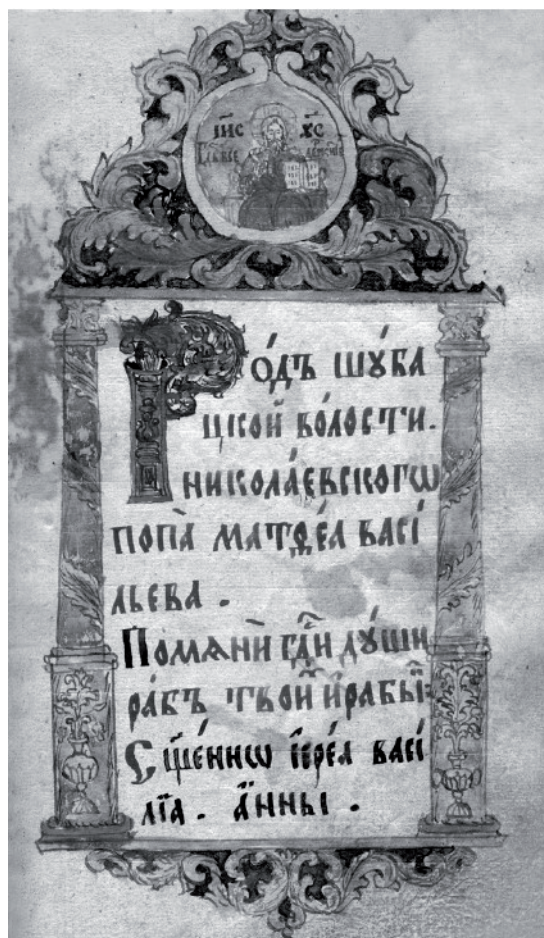 І҆И҃С Х҃С
Ро́дъ шꙋба
цкой во́лости.
николаевскогѡ
попа̀ матѳе́а васі
льева.
Помѧнѝ гд҇и дꙋ́ши
ра́бъ твои҆̑ и҆ рабы̑:
С҃ще́нно і҆ере́а васі́
лїа. а҆́нны.